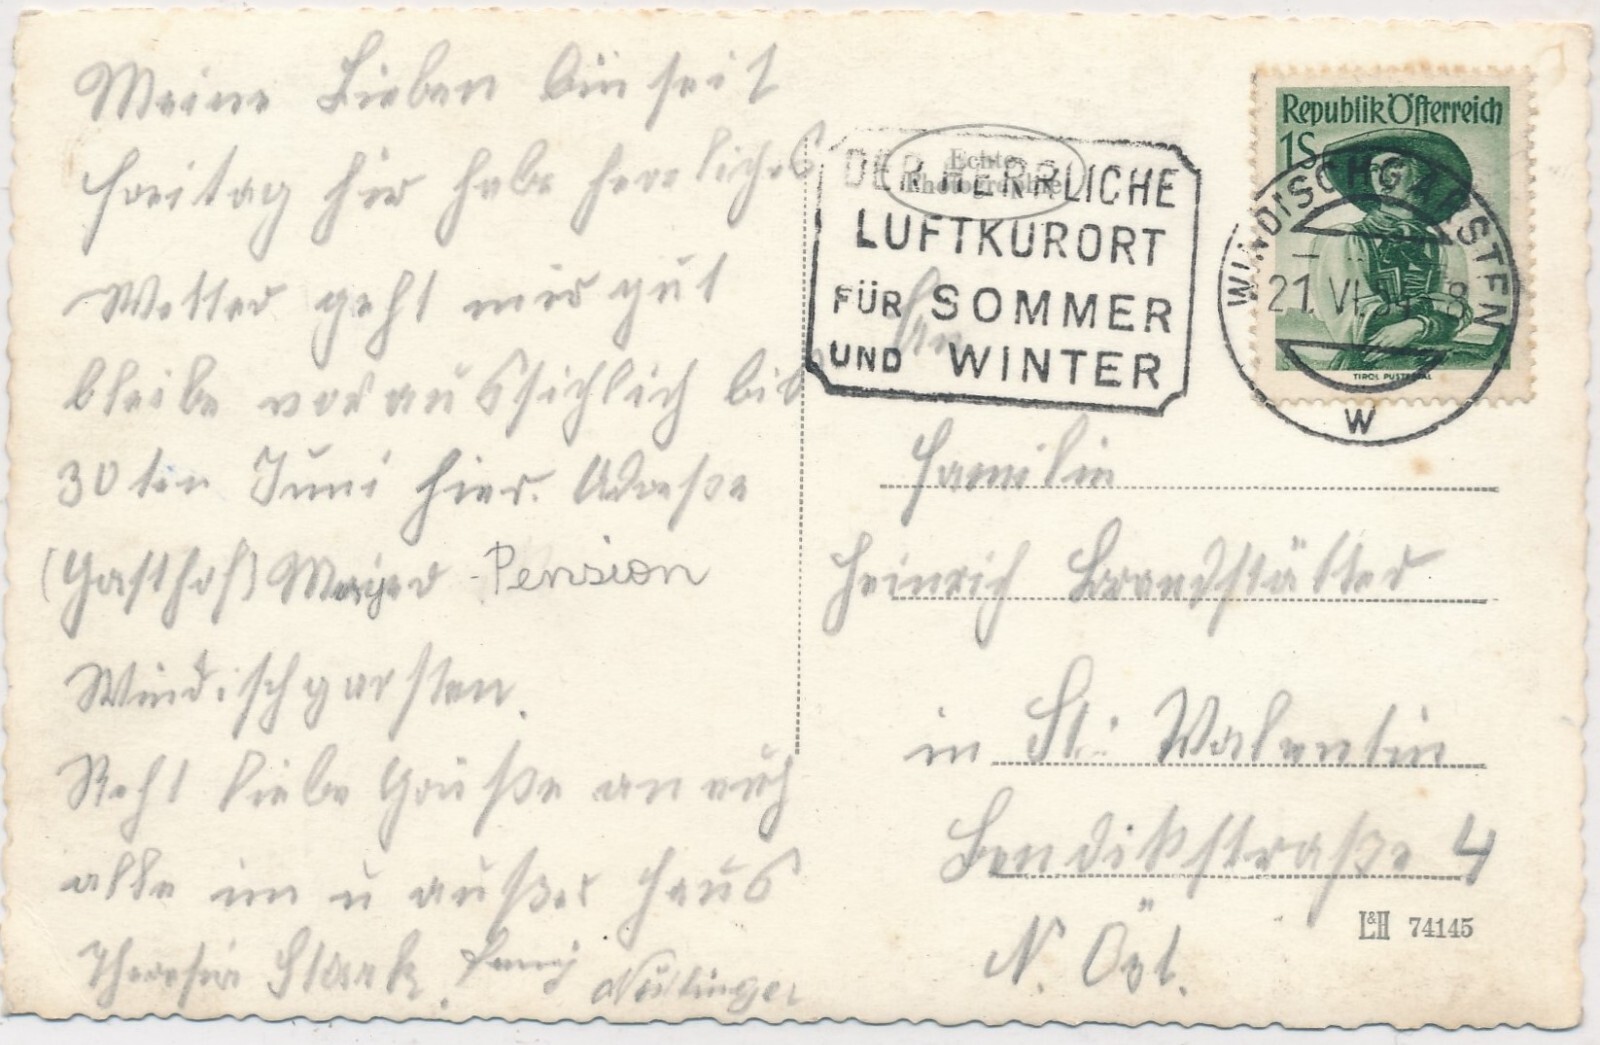 Meine Lieben bin seit
Freitag hir habe herrliches
Wetter geht mir gut
bleibe voraussichlich bis
30ten Juni hier. Adreße
(Gasthof) Mayer - Pension
Windischgarsten.
Recht liebe Grüße an euch
alle im u außer Haus
Theresia Stark. Fanij
Echte
Photographie
DER HERRLICHE
LUFTKURORT
FÜR SOMMER
UND WINTER
Republik Österreich
1S
TIROL PUSTERTAL
WINDISCHGARSTEN
21. VI. 8
W
An
Familie
Heinrich Brandstätter
in St. Valentin
Bendikstraße 4
N. Öst.
L&H 74145